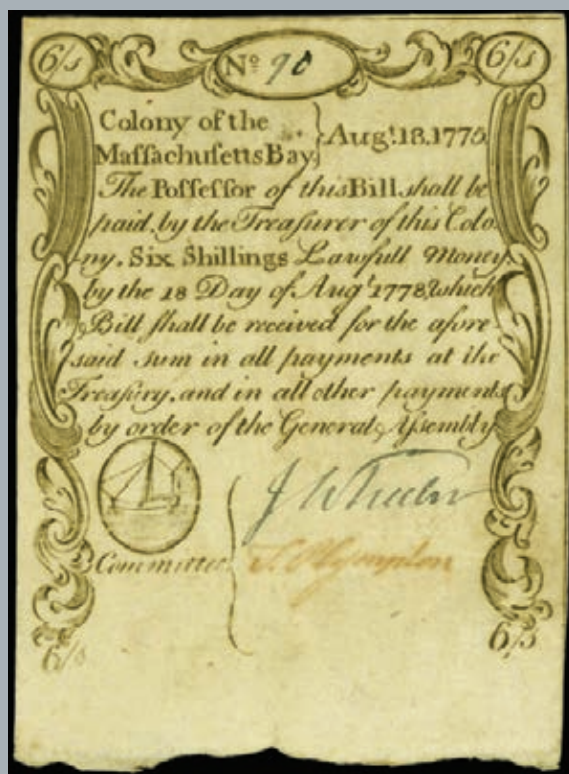 6/s
No 90
6/s
Colony of the
Maſsachuſetts Bay } Augt. 18. 1775
The Poſseſsor of this Bill shall be
paid, by the Treaſurer of this Colo-
ny, Six Shillings Lawfull Money
by the 18 Day of Augt. 1778 which
Bill ſhall be received for the afore-
said sum in all payments at the
Treaſury, and in all other payments
by order of the General Aſsembly
J Wheeler
Committee
6/s
6/s